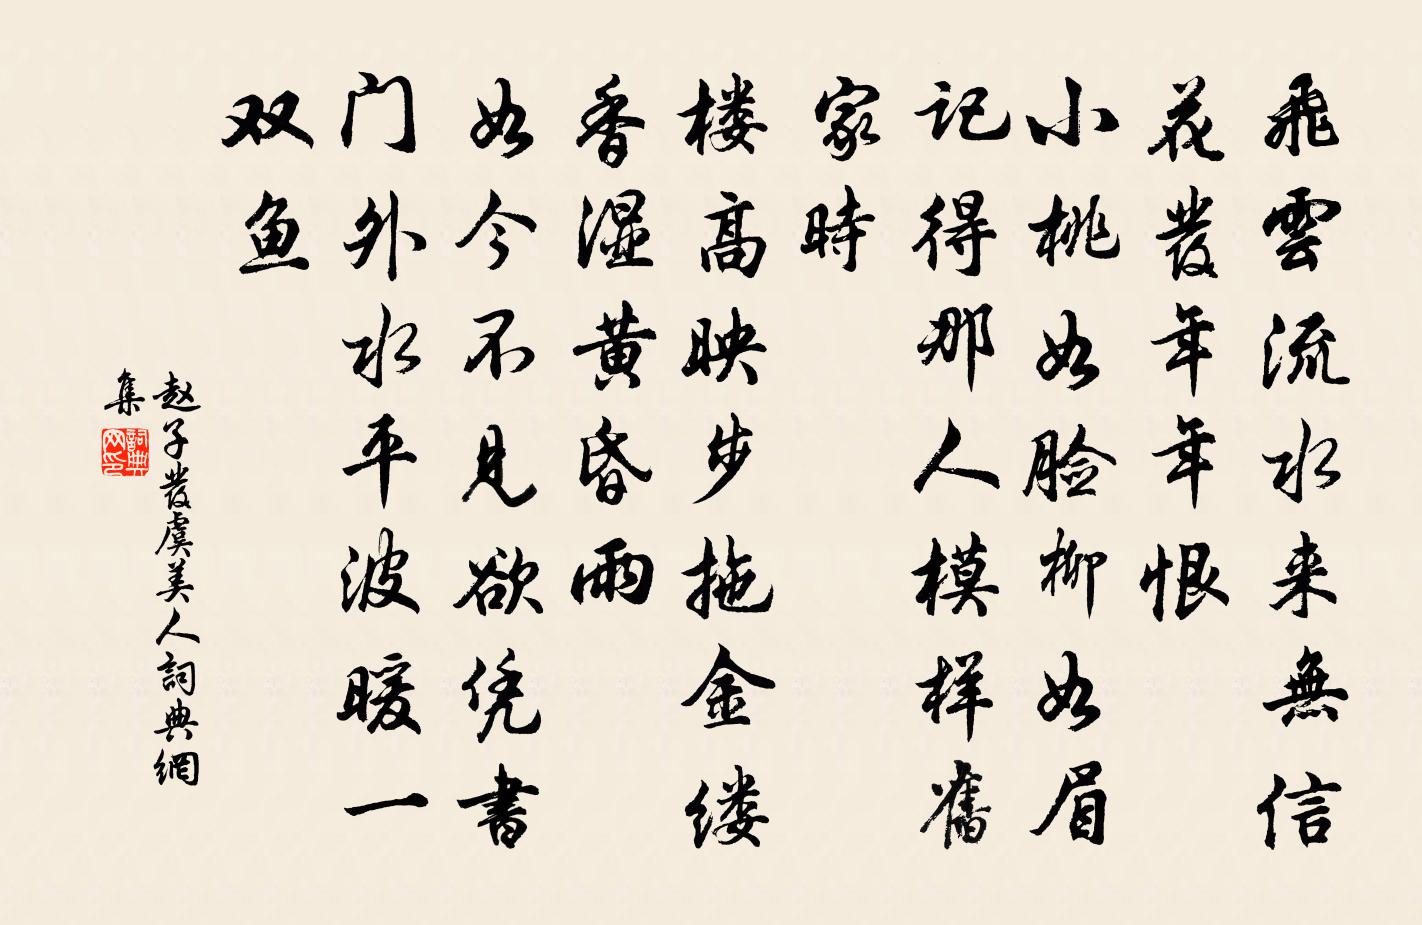 飛雲流水来無信
花發年年恨
小桃如脸柳如眉
记得那人模样舊
家時
楼高映步拖金缕
香湿黄昏雨
如今不見欲凭書
门外水平波暖一
双鱼
赵子發虞美人詞典網
集
詞典
网印